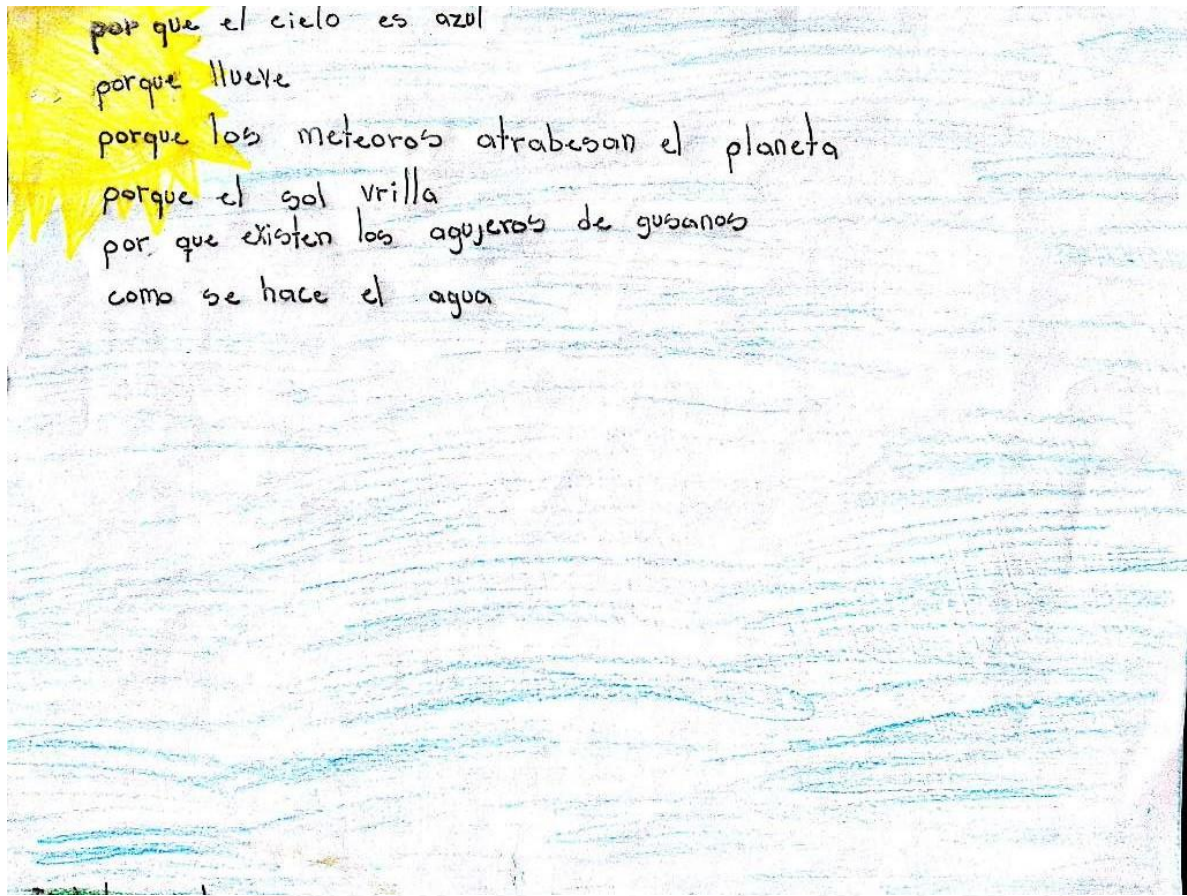 por que el cielo es azul
porque llueve
porque los meteoros atrabesan el planeta
porque el sol vrilla
por que existen los agujeros de gusanos
como se hace el agua